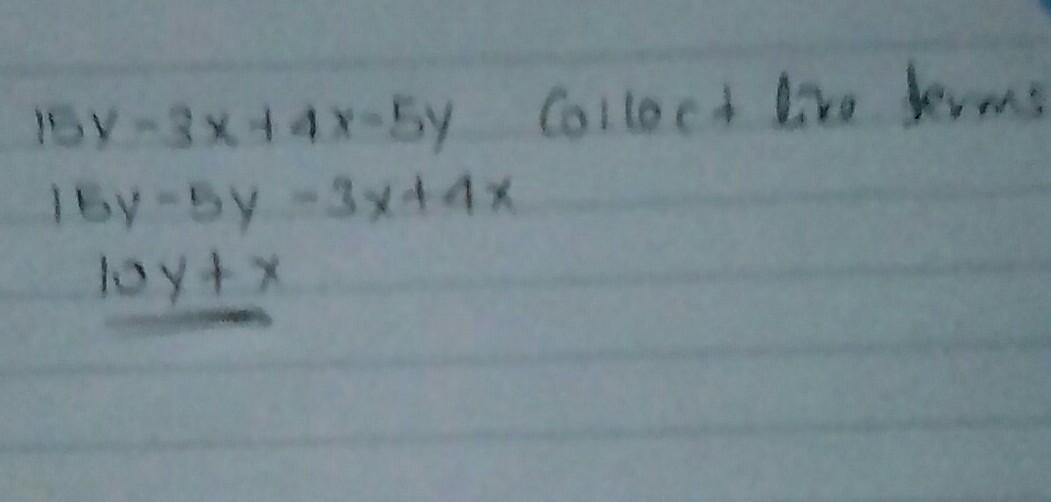 15y-3x+4x-5y Collect like terms
15y-5y-3x+4x
10y+x